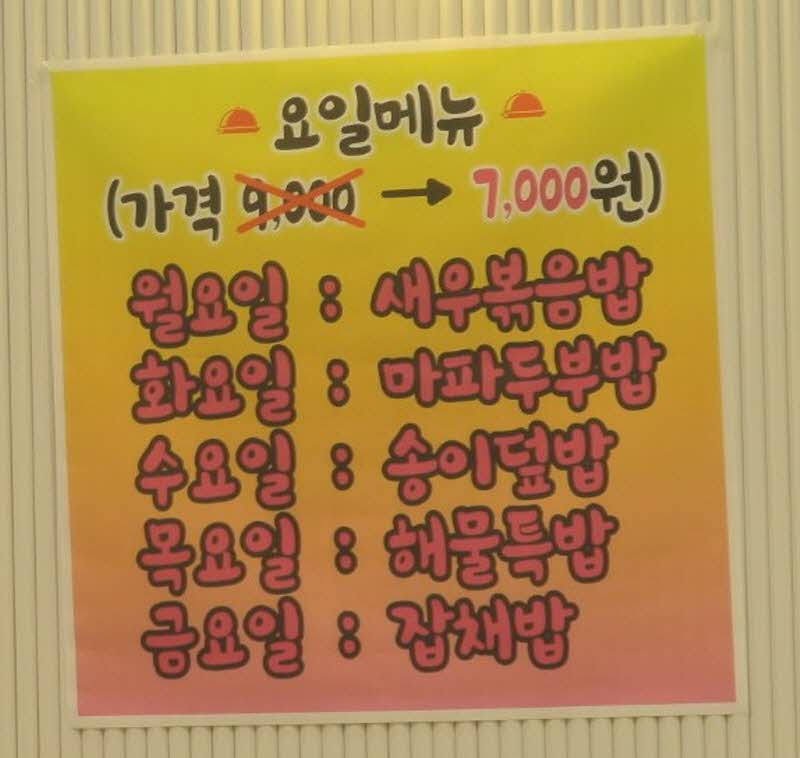 요일메뉴
(가격 9,000 → 7,000원)
월요일 : 새우볶음밥
화요일 : 마파두부밥
수요일 : 송이덮밥
목요일 : 해물특밥
금요일 : 잡채밥